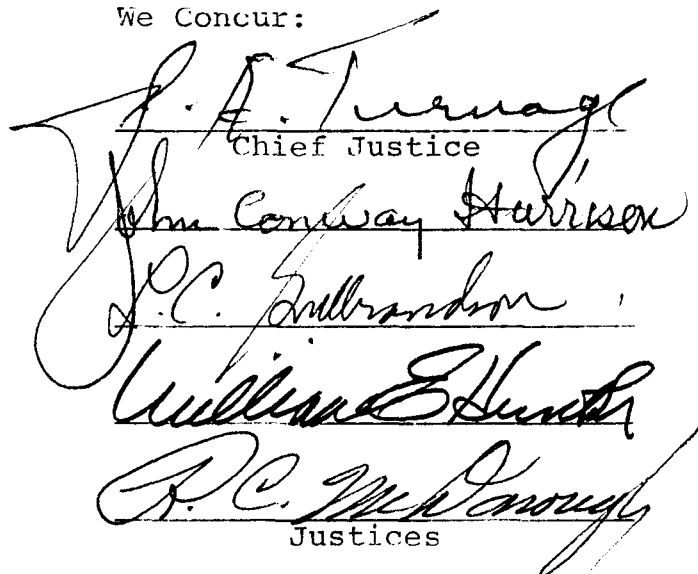 We Concur:
J. A. Turnage
Chief Justice
John Conway Harrison
L.C. Gulbrandson
William E Hunter
R. C. McDonough
Justices